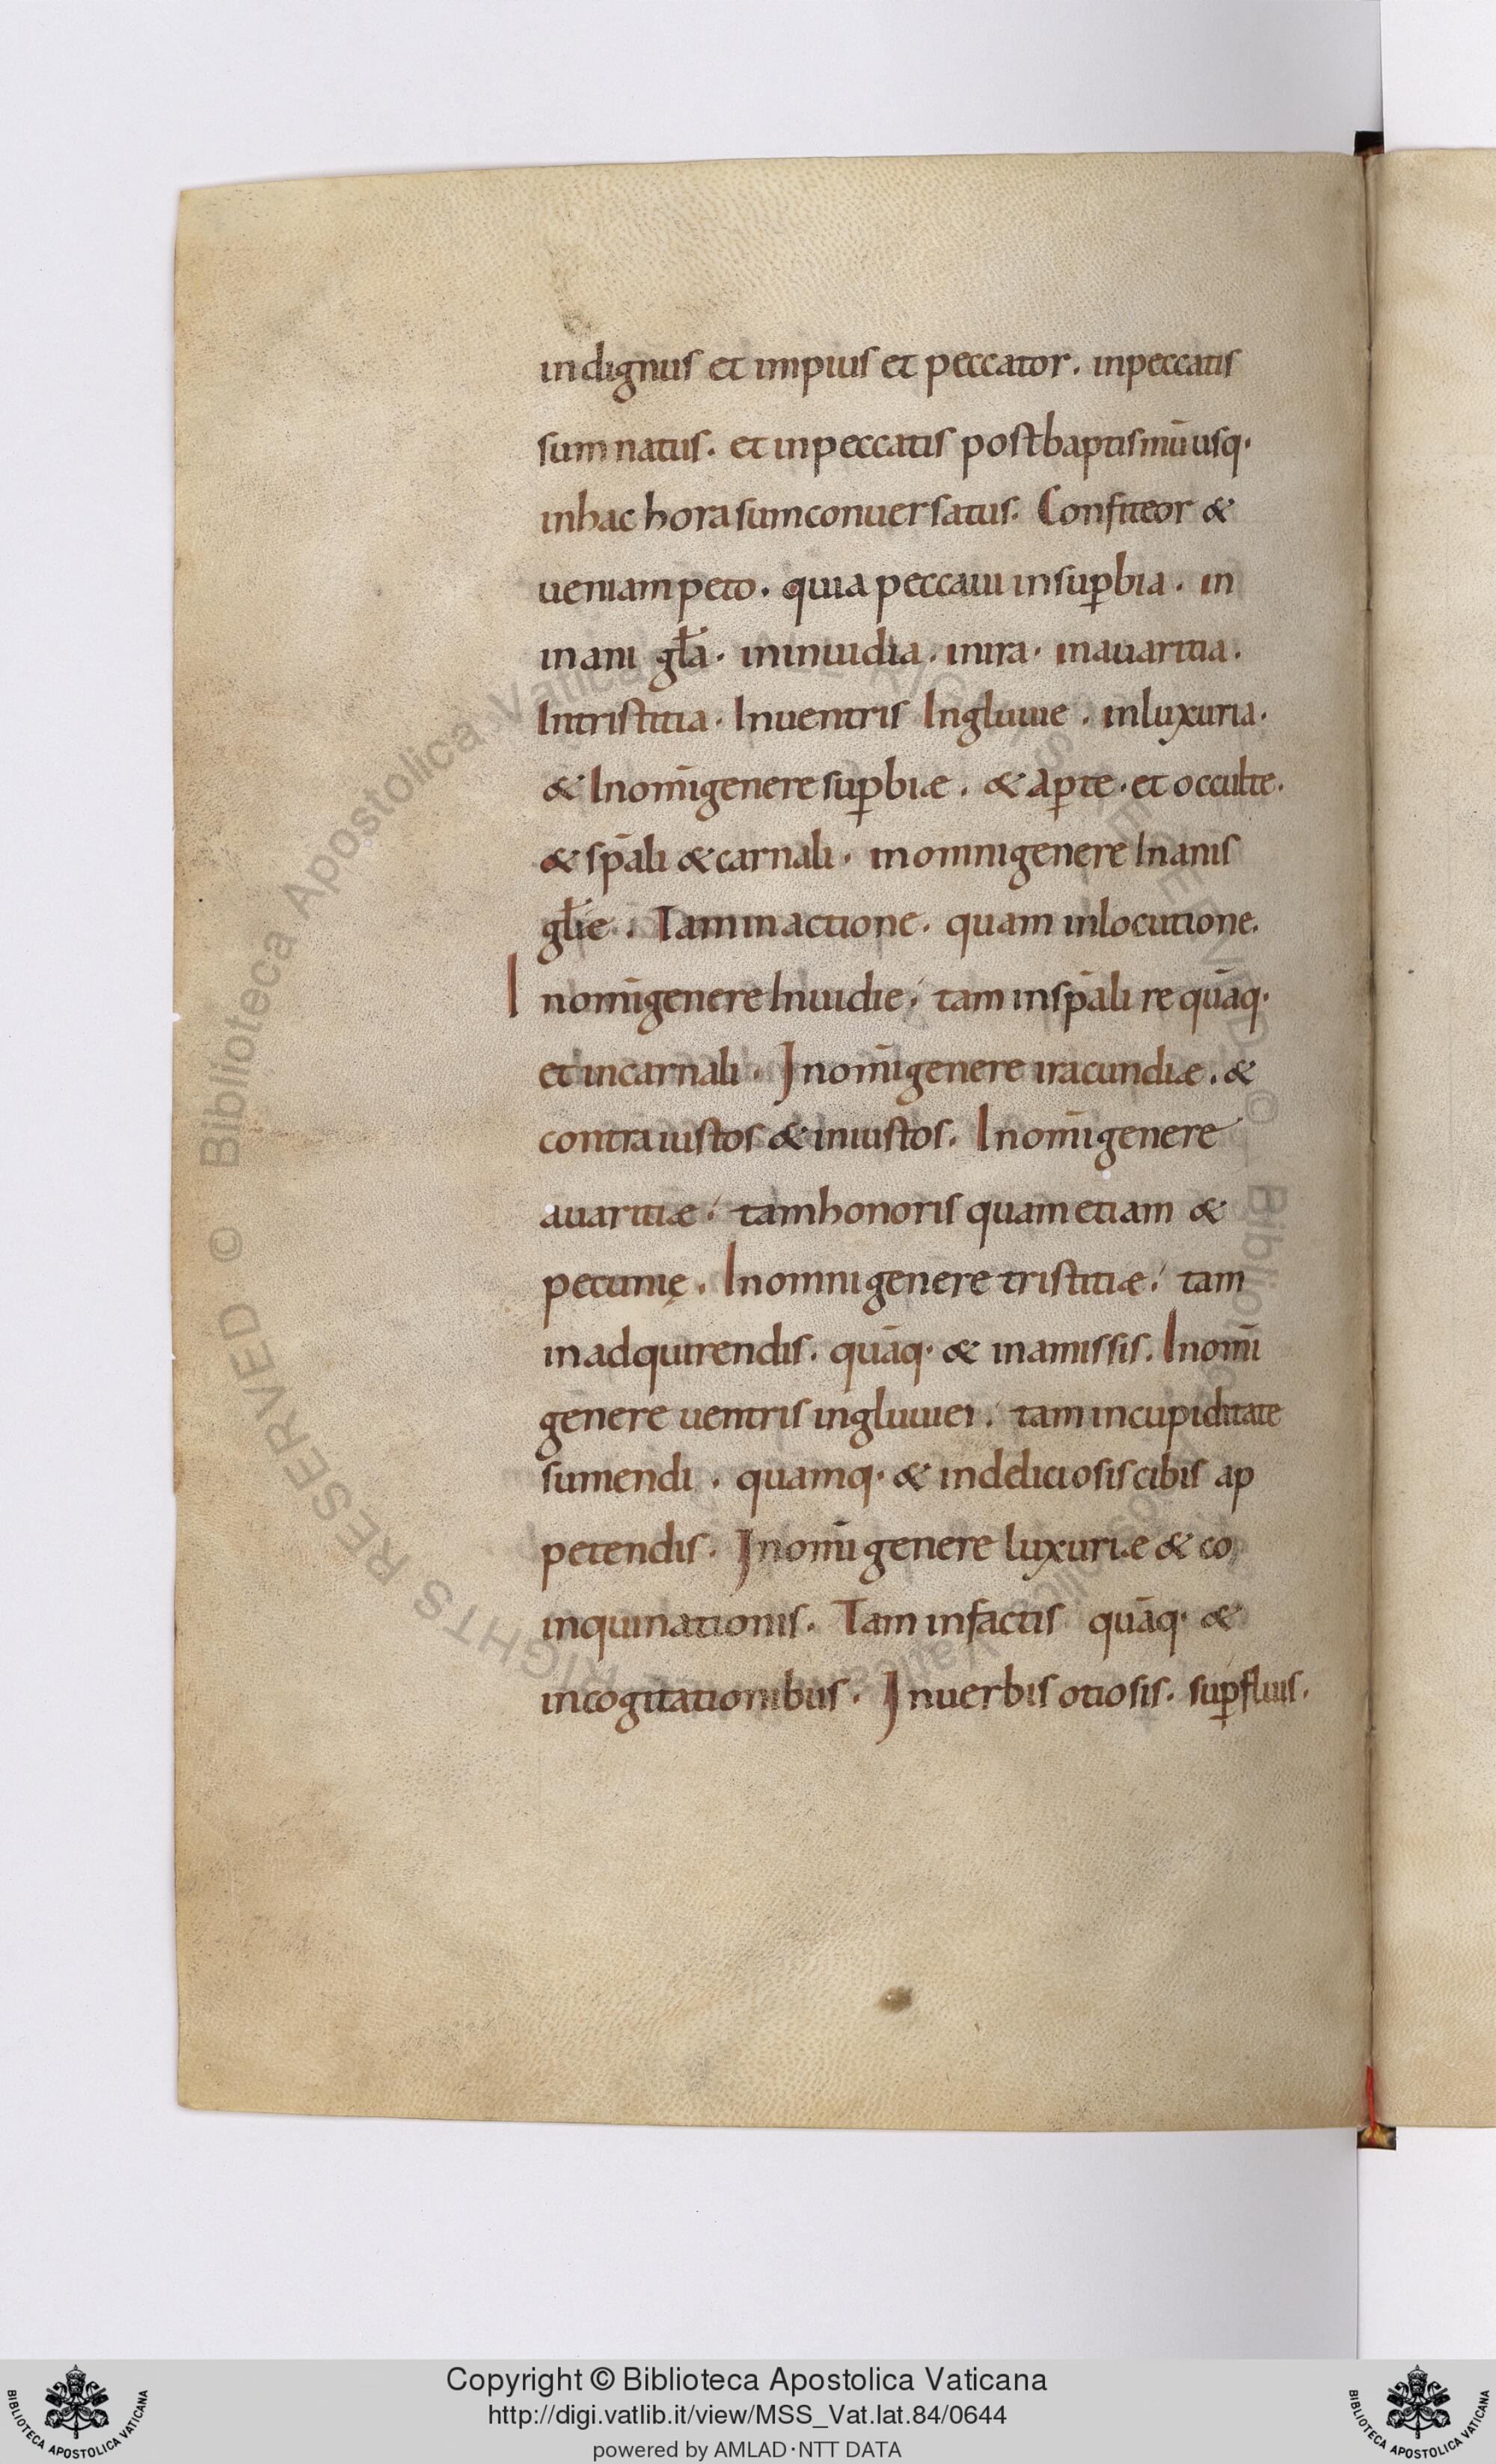 indignus et impius et peccator. inpeccatis
sum natus. et inpeccatis postbaptismū usq·
inhac hora sumconuersatus. Confiteor &
ueniampeto. quia peccaui insup̱bia. in
inani gła. ininuidia. inira. inauaritia.
Intristitia. Inuentris Ingluuie. inluxuria.
& Inom̄igenere sup̱biæ. & ap̱te. et occulte.
& sp̄ali & carnali. inomnigenere Inanis
głie. Taminactione. quam inlocutione.
Inom̄igenere Inuidie; tam insp̄ali re quāq·
et incarnali. Inom̄igenere iracundiæ. &
contraiustos & iniustos. Inom̄igenere
auaritiæ; tamhonoris quametiam &
pecunię. Inomnigenere tristitiæ; tam
inadquirendis. quāq· & inamissis. Inom̄i
genere uentris ingluuiei; tam incupiditate
sumendi. quamq· & indeliciosis cibis ap
petendis. Inom̄i genere luxuriæ & co
inquinationis. Tam infactis quāq· &
incogitationibus. Inuerbis otiosis. sup̱fluis.
Copyright © Biblioteca Apostolica Vaticana
http://digi.vatlib.it/view/MSS_Vat.lat.84/0644
powered by AMLAD·NTT DATA
BIBLIOTECA APOSTOLICA VATICANA
BIBLIOTECA APOSTOLICA VATICANA